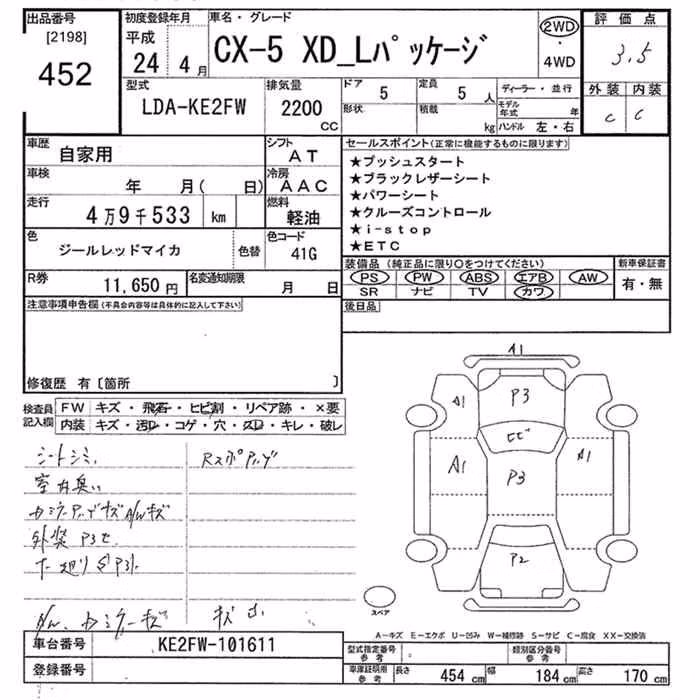 出品番号 初度登録年月 車名・グレード 評価点
[2198] 平成 CX-5 XD_Lパッケージ 2WD 3.5
452 24年 4月 ・ 4WD 外装 内装
型式 排気量 ドア 5 定員 5人 ディーラー・並行 C C
LDA-KE2FW 2200 CC 形状 積載 kg モデル年式 年
ハンドル 左・右
車歴 自家用 シフト AT セールスポイント(正常に機能するものに限ります)
車検 年 月( 日) 冷房 AAC ★プッシュスタート
走行 4万9千533 km 燃料 軽油 ★ブラックレザーシート
★パワーシート
★クルーズコントロール
★i-stop
★ETC
色 ジールレッドマイカ 色替 色コード 41G
装備品(純正品に限り○をつけてください) 新車保証書
PS PW ABS エアB AW 有・無
SR ナビ TV カワ
R券 11,650円 名変通知期限 月 日
後日品
注意事項申告欄(不具合内容等は具体的に記入して下さい)
修復歴 有〔箇所 〕
検査員記入欄 FW キズ・飛石・ヒビ割・リペア跡・×要
内装 キズ・汚れ・コゲ・穴・スレ・キレ・破レ
シートシミ
外装 P3セ
キズ
A1
A1 P3
ヒビ
A1 P3 A1
P2
スペア
A−キズ E−エクボ U−凹み W−補修跡 S−サビ C−腐食 XX−交換済
車台番号 KE2FW-101611
型式指定番号 参考 類別区分番号 参考
登録番号
車庫証明用 参考 長さ 454 cm 幅 184 cm 高さ 170 cm